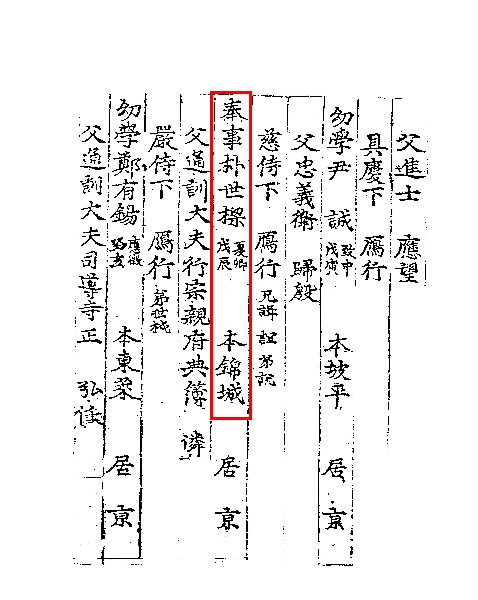 父進士 應望
具慶下 鴈行
幼學尹 誠 致中 戊 本坡平 居 京
父忠義衛 歸
慈侍下 鴈行 兄 弟
奉事朴世樑 夏卿 戊辰 本錦城 居 京
父通訓大夫行宗親府典簿
嚴侍下 鴈行 弟世
幼學鄭有錫 應 本東萊 居 京
父通訓大夫司導寺正 弘